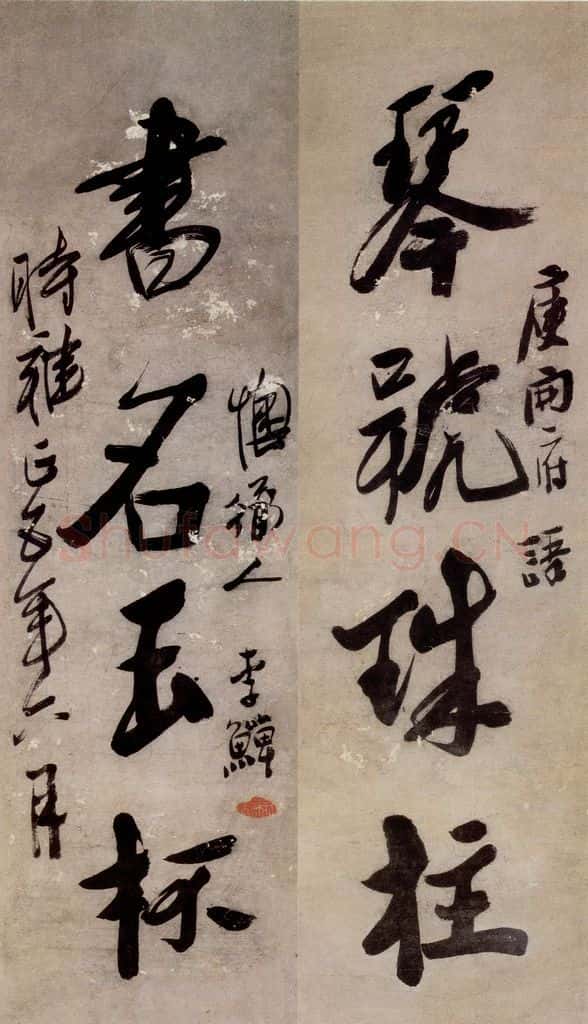 庾開府語
琴號珠柱
書名玉杯
時雍正五年六月
懊道人 李鱓
Shufawang.CN